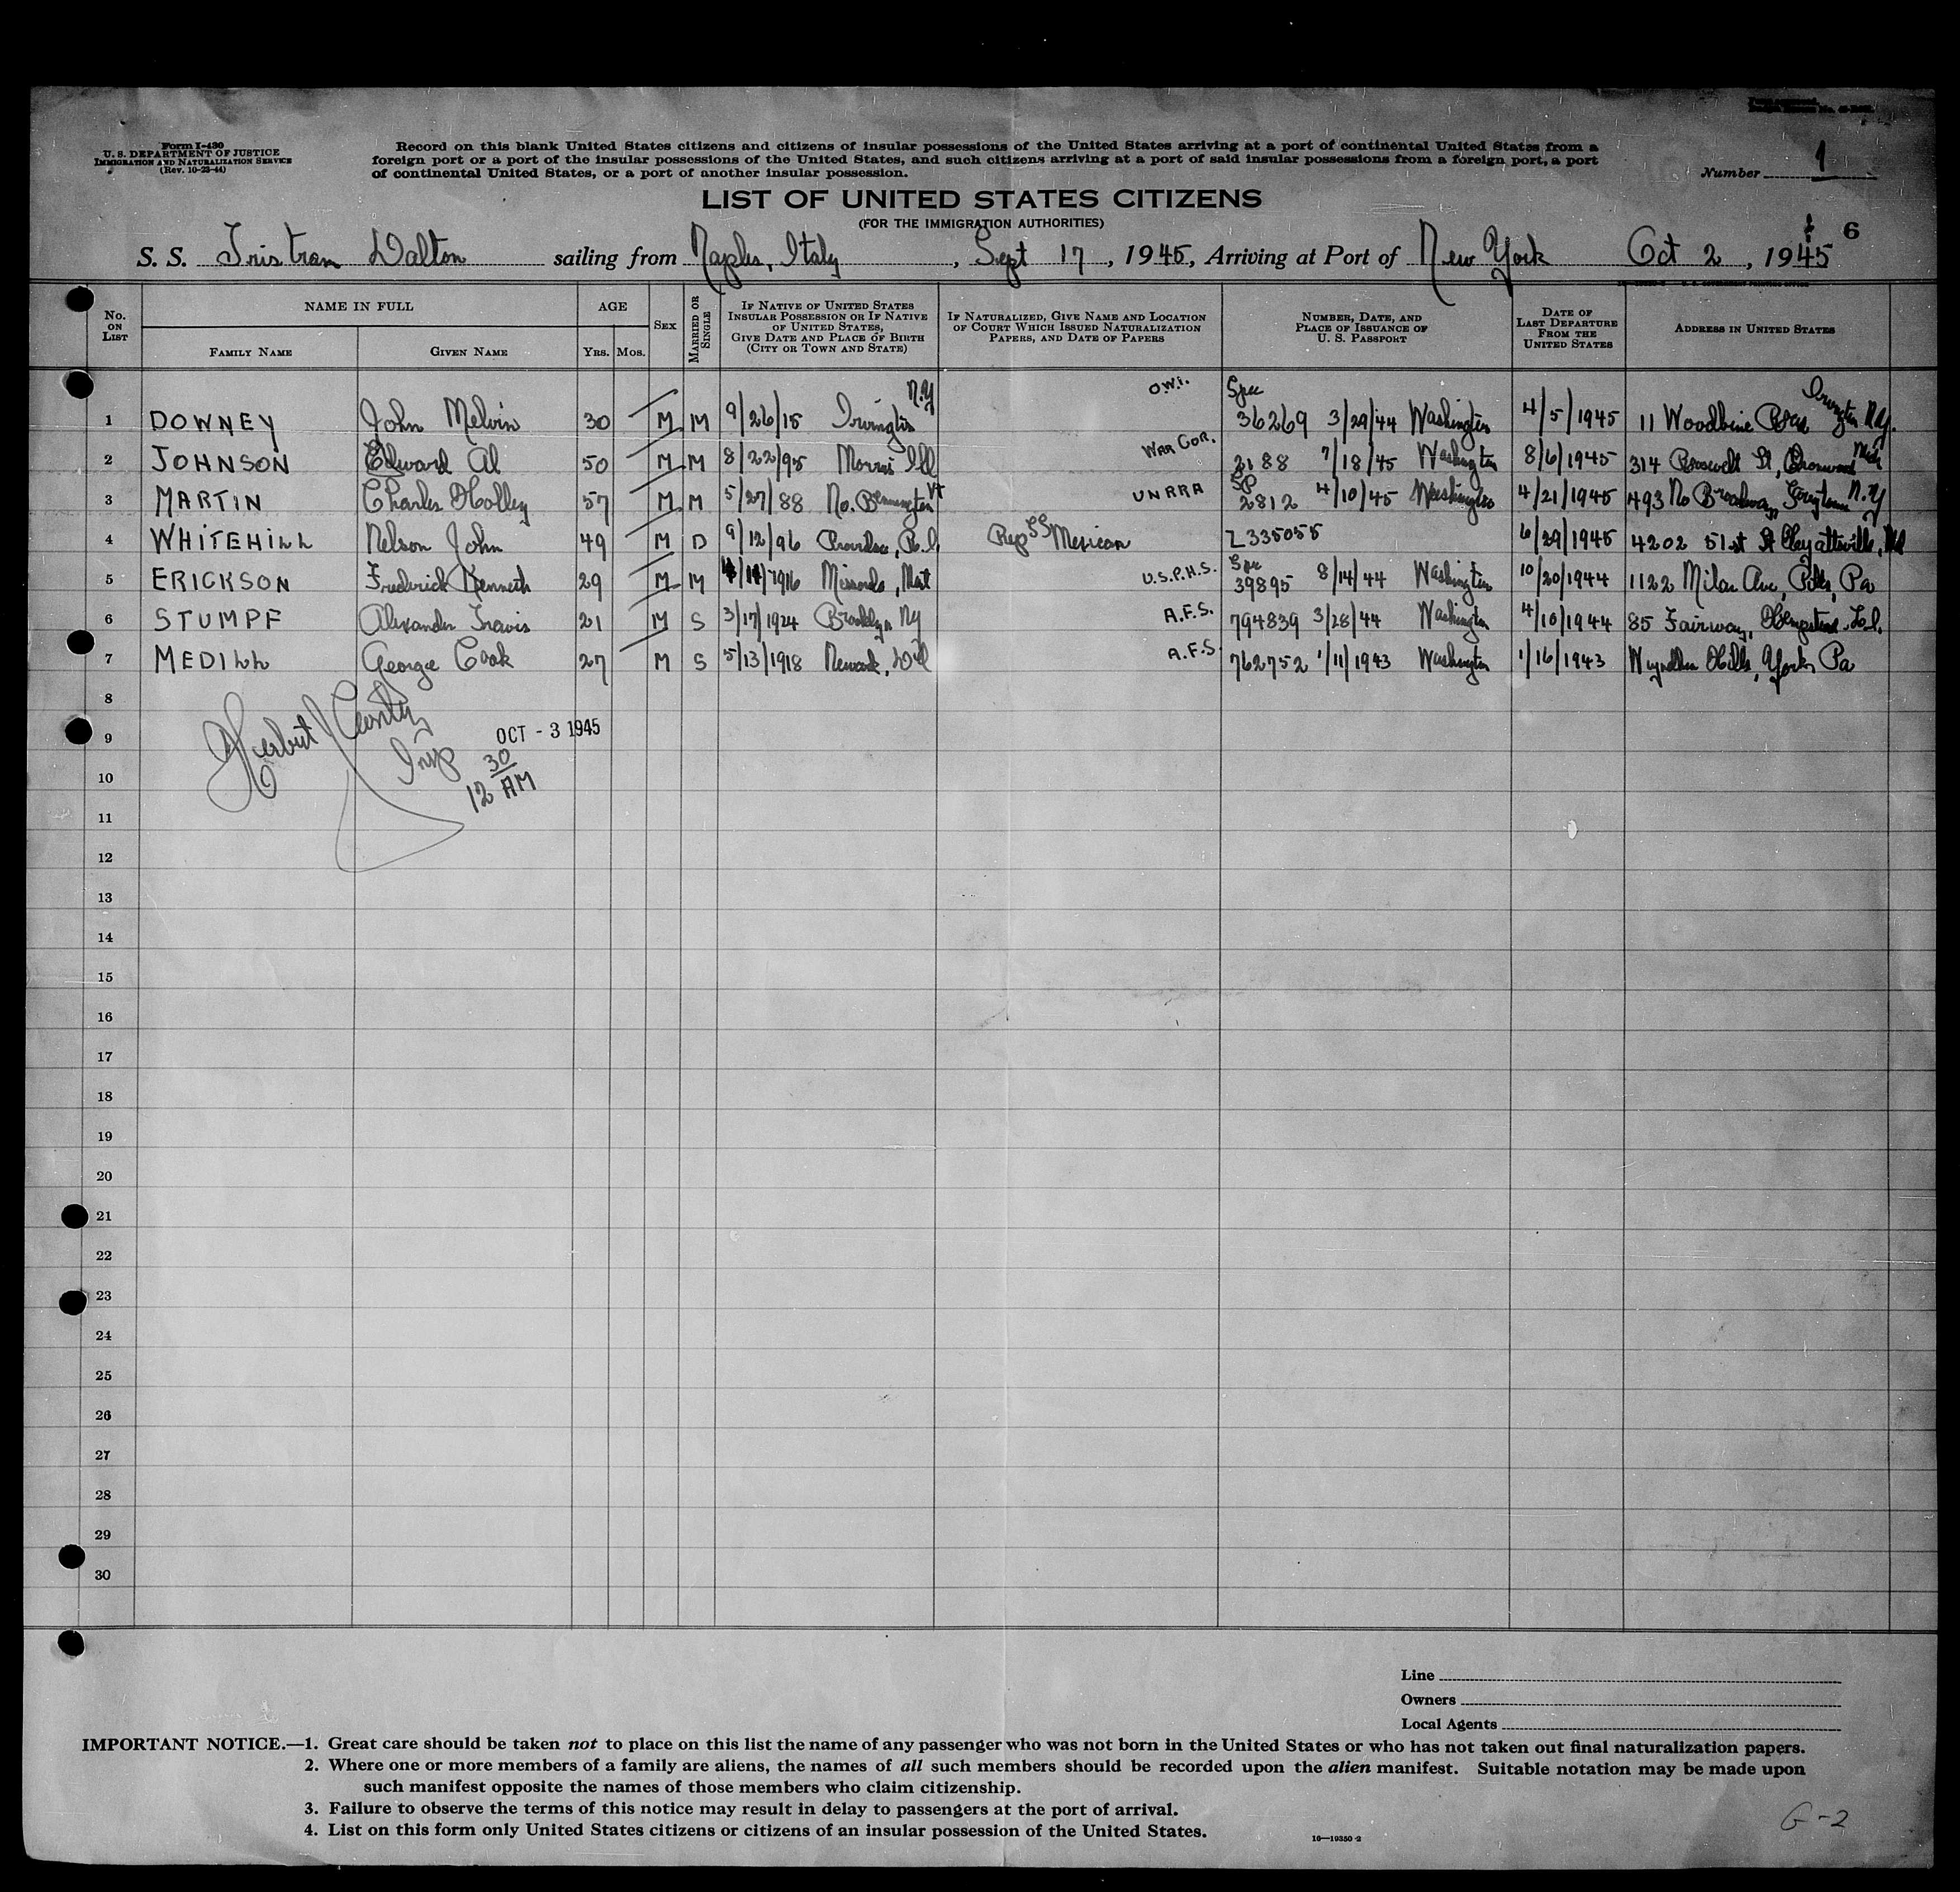 Form I-430
U. S. DEPARTMENT OF JUSTICE
IMMIGRATION AND NATURALIZATION SERVICE
(Rev. 10-25-44)
Record on this blank United States citizens and citizens of insular possessions of the United States arriving at a port of continental United States from a
foreign port or a port of the insular possessions of the United States, and such citizens arriving at a port of said insular possessions from a foreign port, a port
of continental United States, or a port of another insular possession.
Number 1
LIST OF UNITED STATES CITIZENS
(FOR THE IMMIGRATION AUTHORITIES)
6
S. S. Tristram Dalton sailing from Naples, Italy, Sept 17, 1945, Arriving at Port of New York Oct 2, 1945
No. ON LIST
NAME IN FULL
FAMILY NAME
GIVEN NAME
AGE
YRS. MOS.
SEX
MARRIED OR SINGLE
IF NATIVE OF UNITED STATES INSULAR POSSESSION OR IF NATIVE OF UNITED STATES, GIVE DATE AND PLACE OF BIRTH (CITY OR TOWN AND STATE)
IF NATURALIZED, GIVE NAME AND LOCATION OF COURT WHICH ISSUED NATURALIZATION PAPERS, AND DATE OF PAPERS
NUMBER, DATE, AND PLACE OF ISSUANCE OF U. S. PASSPORT
DATE OF LAST DEPARTURE FROM THE UNITED STATES
ADDRESS IN UNITED STATES
1 DOWNEY John Melvin 30 M M 9/26/15 Irvington N.Y O.W.I. Spec 36269 3/29/44 Washington 4/5/1945 11 Woodbine Irvington N.Y.
2 JOHNSON Edward Al 50 M M 8/22/95 Morris Ill War Cor. 2188 7/18/45 Washington 8/6/1945 314 Roosevelt St, Mich
3 MARTIN Charles Holley 57 M M 5/27/88 No. Bennington Vt UNRRA SP 2812 4/10/45 Washington 4/21/1945 493 No Broadway, N.Y
4 WHITEHILL Nelson John 49 M D 9/12/96 Providence, R.I. Rep SS Mexican Z335055 6/29/1945 4202 51st St Hyattsville, Md
5 ERICKSON Frederick Kenneth 29 M M 4/14/1916 Missoula, Mont U.S.P.H.S. Spec 39895 8/14/44 Washington 10/20/1944 1122 Milan Ave, Pitts, Pa
6 STUMPF Alexander Travis 21 M S 3/17/1924 Brooklyn NY A.F.S. 794839 3/28/44 Washington 4/10/1944 85 Fairway, Hempstead L.I.
7 MEDILL George Cook 27 M S 5/13/1918 Newark, Del A.F.S. 762752 1/11/1943 Washington 1/16/1943 Wyndham Hills, York, Pa
8
Herbert J
9 OCT - 3 1945
Insp
10 12 30 AM
11
12
13
14
15
16
17
18
19
20
21
22
23
24
25
26
27
28
29
30
Line
Owners
Local Agents
IMPORTANT NOTICE.—1. Great care should be taken not to place on this list the name of any passenger who was not born in the United States or who has not taken out final naturalization papers.
2. Where one or more members of a family are aliens, the names of all such members should be recorded upon the alien manifest. Suitable notation may be made upon
such manifest opposite the names of those members who claim citizenship.
3. Failure to observe the terms of this notice may result in delay to passengers at the port of arrival.
4. List on this form only United States citizens or citizens of an insular possession of the United States.
16—19350-2
G-2